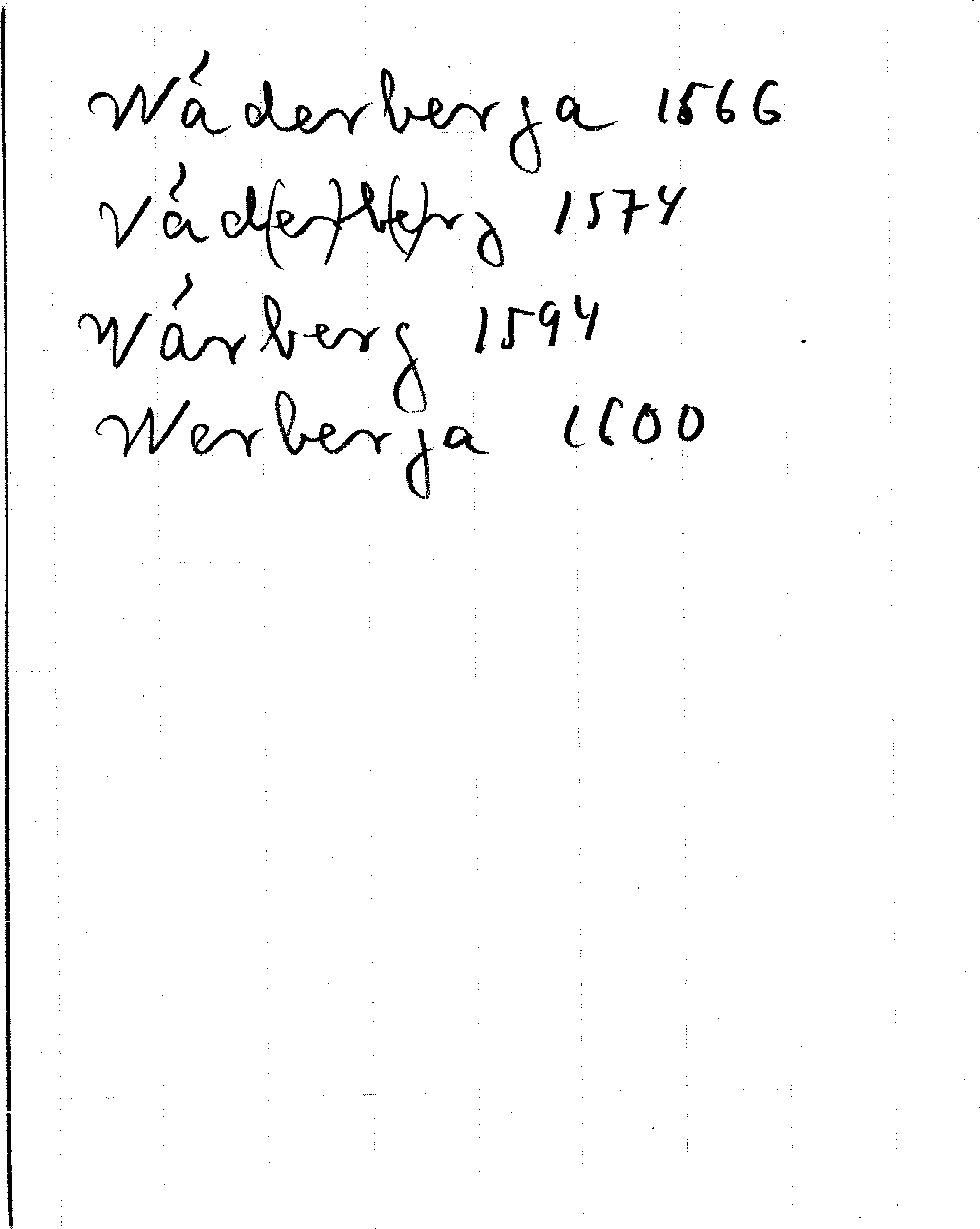 Wáderberga 1566
Vád(er)b(e)rg 1574
Wárberg 1594
Werberga 1600